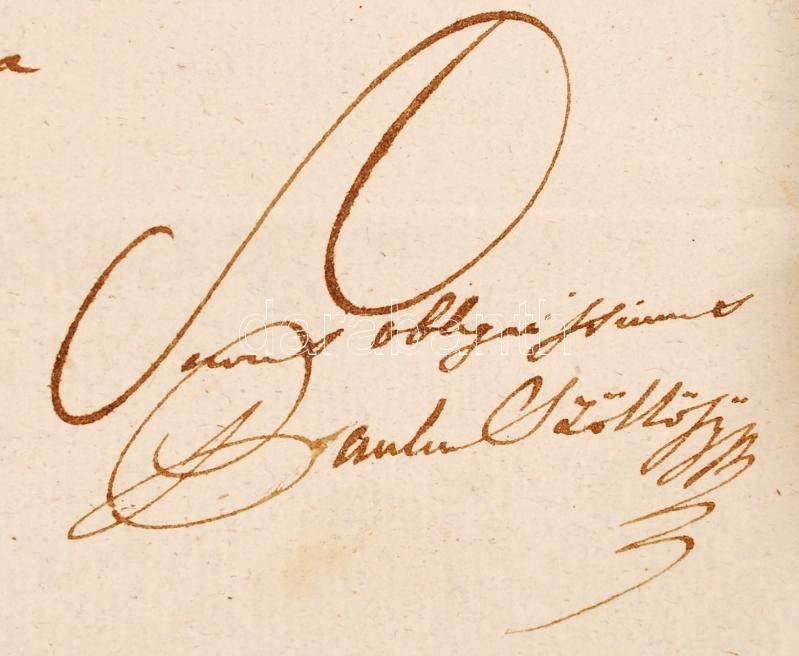 a
Servus obligatissimus
Paulus Szöllősy
darabanth